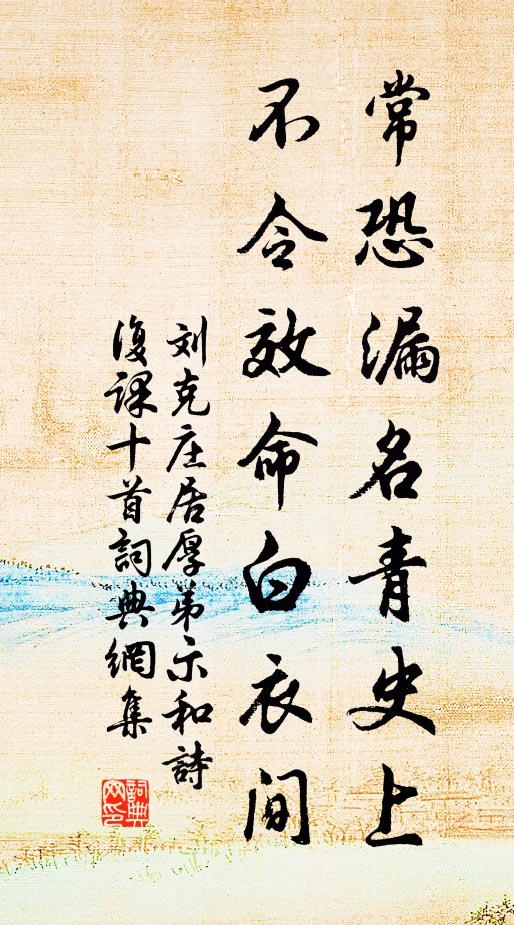 常恐漏名青史上
不令效命白衣间
刘克庄居厚弟示和詩
復課十首詞典網集
詞典网印